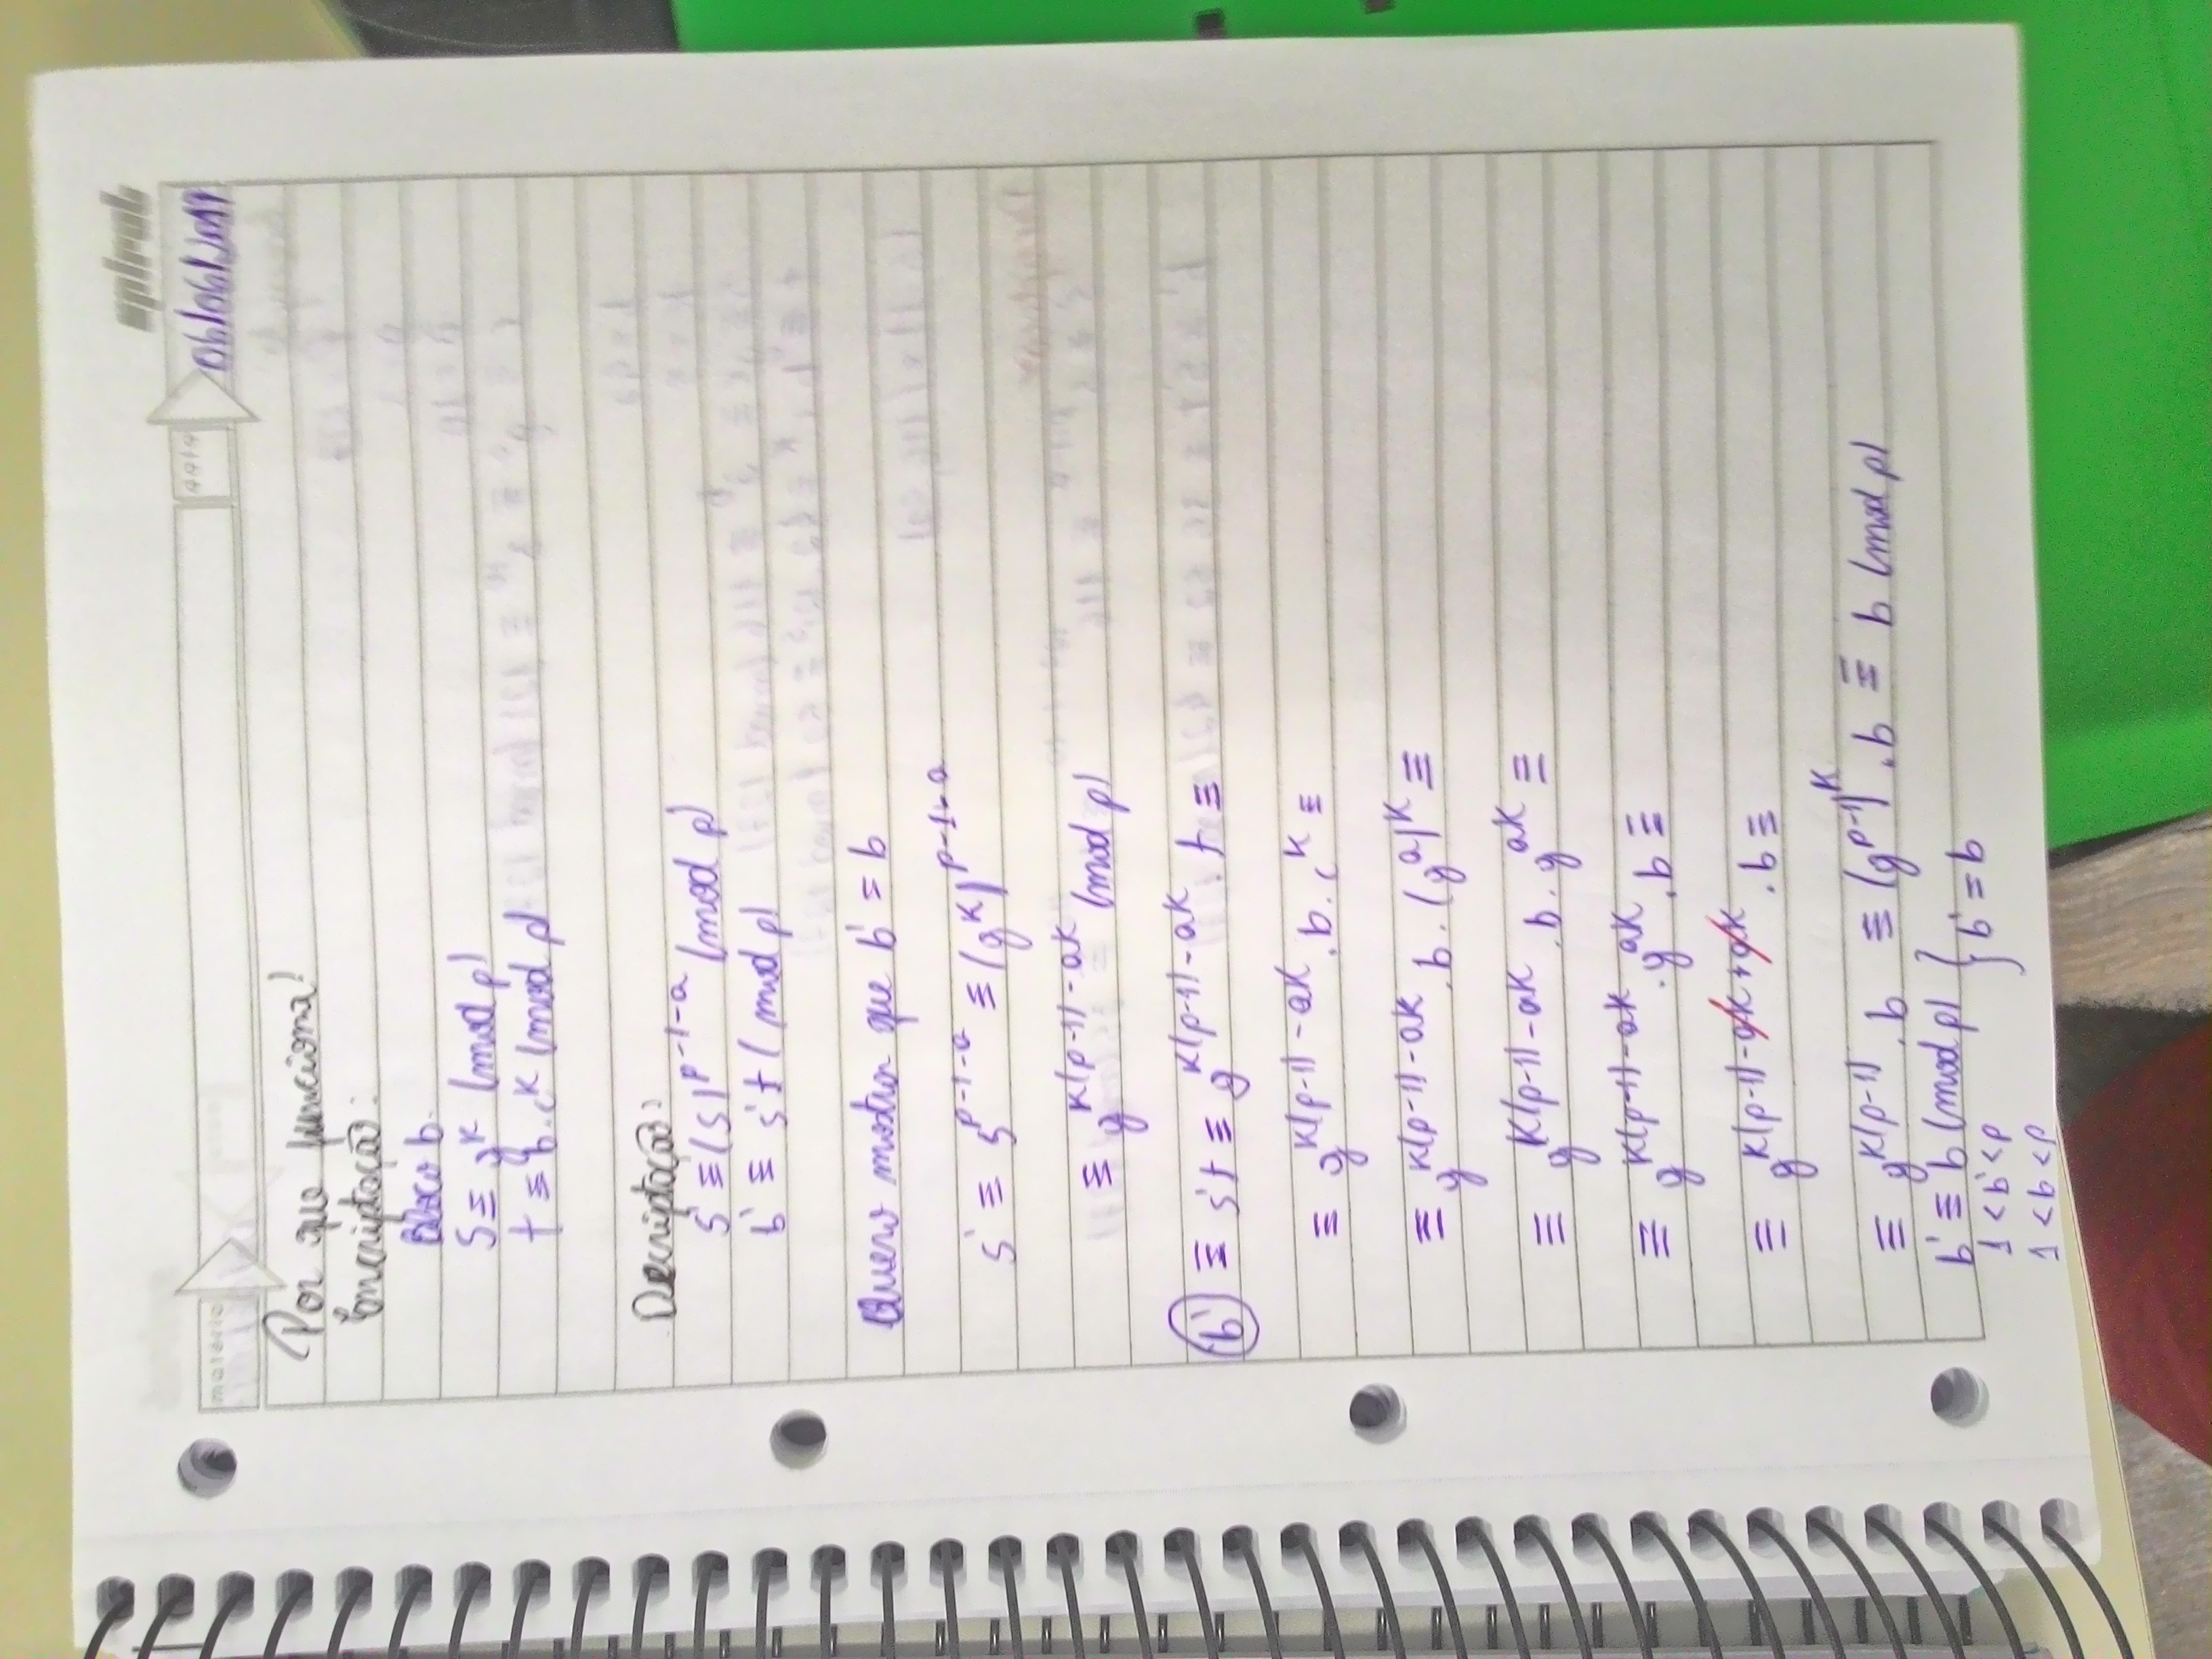 spiral
matéria
Por que funciona!
Encriptação:
Bloco b.
S ≡ g^k (mod p)
t ≡ b.c^k (mod p)
Decriptação:
s' ≡ (s)^p-1-a (mod p)
b' ≡ s't (mod p)
Quero mostrar que b' = b
s' ≡ s^p-1-a ≡ (g^k)^p-1-a
≡ g^k(p-1)-ak (mod p)
b' ≡ s't ≡ g^k(p-1)-ak . t ≡
≡ g^k(p-1)-ak . b . c^k ≡
≡ g^k(p-1)-ak . b . (g^a)^k ≡
≡ g^k(p-1)-ak . b . g^ak ≡
≡ g^k(p-1)-ak . g^ak . b ≡
≡ g^k(p-1)-ak+ak . b ≡
≡ g^k(p-1) . b ≡ (g^p-1)^k . b ≡ b (mod p)
b' ≡ b (mod p) } b' = b
1 < b' < p
1 < b < p